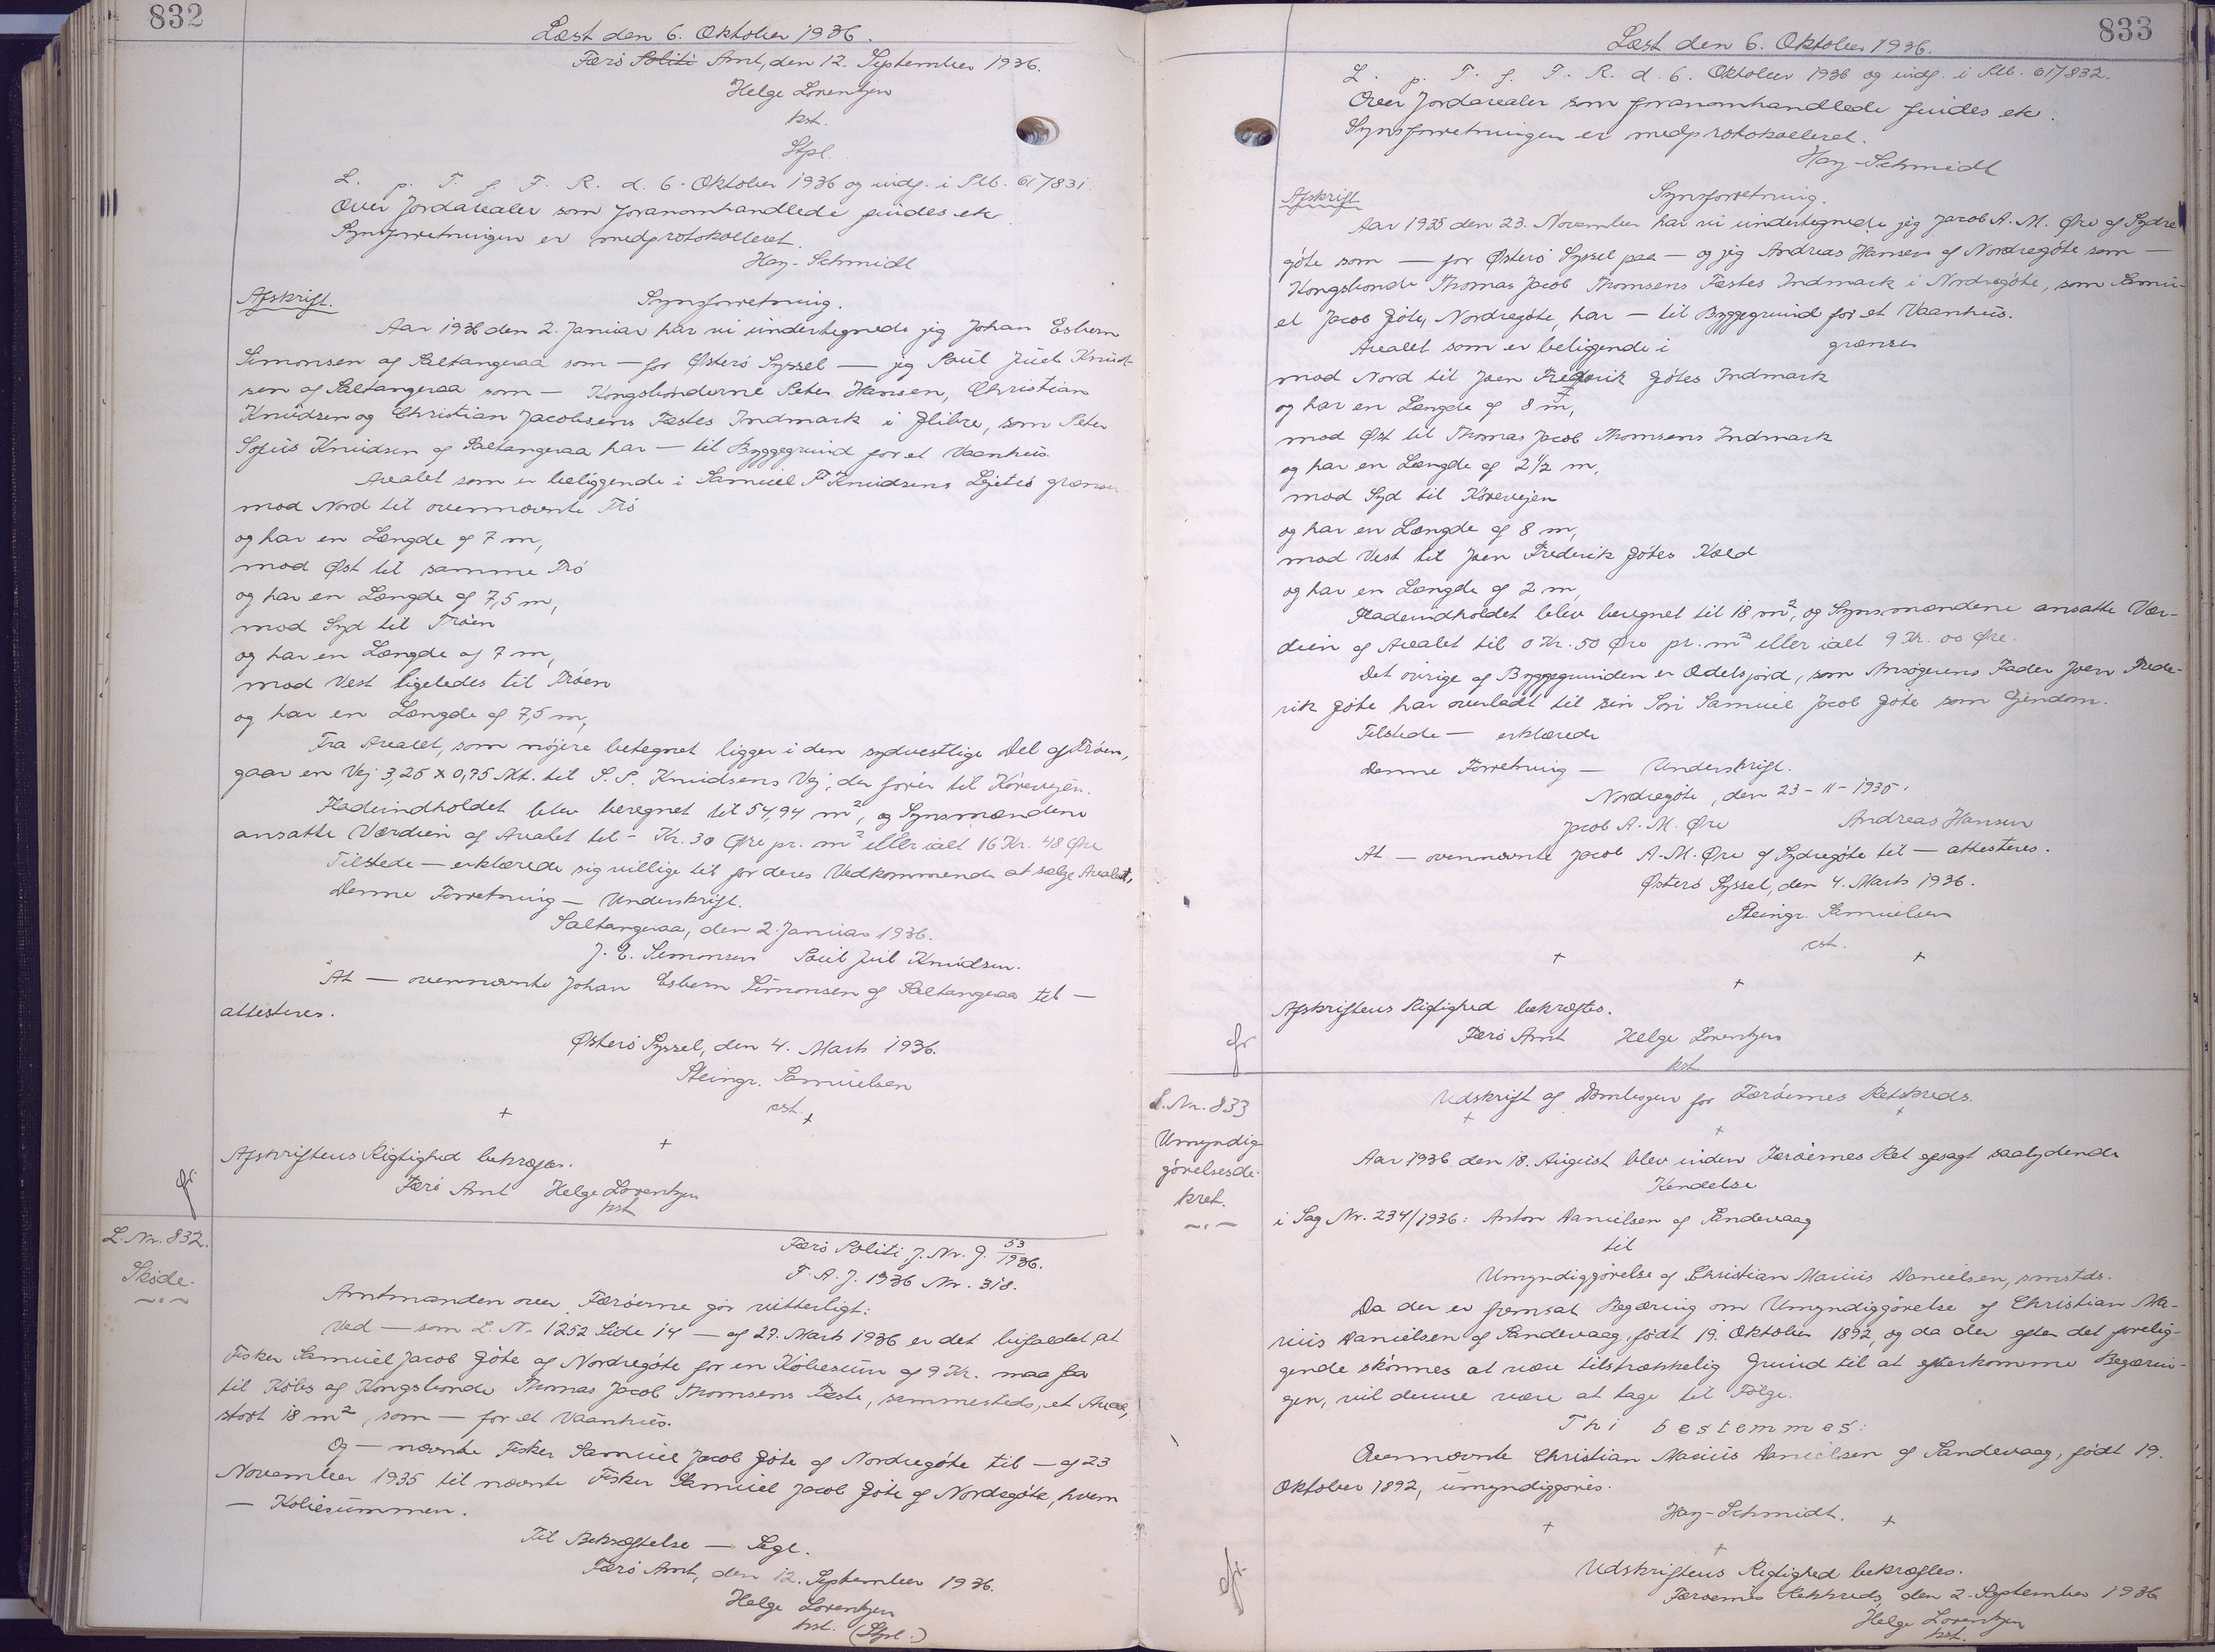 832
Læst den 6. Oktober 1936.
Færø Politi Amt, den 12. September 1936.
Helge Lorentzen
kst.
Stpl.
L. p. T. f. F. R. d. 6. Oktober 1936 og indf. i Ptb. 61/831.
Over Jordarealer som foranomhandlede findes ek
Synsforretningen er medprotokolleret.
Hay-Schmidt
Afskrift. Synsforretning.
Aar 1936 den 2. Januar har vi undertegnede jeg Johan Esbern
Simonsen af Saltangeraa som — for Østerø Syssel — jeg Poul Juel Knud-
sen af Saltangeraa som — Kongsbønderne Peter Hansen, Christian
Knudsen og Christian Jacobsens Fæstes Indmark i Glibre, som Peter
Sofus Knudsen af Saltangeraa har — til Byggegrund for et Vaanhus.
Arealet som er beliggende i Samuel P. Knudsens Lejetrø grænser
mod Nord til ovennævnte Trø
og har en Længde af 7 m,
mod Øst til samme Trø
og har en Længde af 7,5 m,
mod Syd til Trøen
og har en Længde af 7 m,
mod Vest ligeledes til Trøen
og har en Længde af 7,5 m,
Fra Arealet, som nøjere betegnet ligger i den sydvestlige Del af Trøen,
gaar en Vej 3,25 x 0,75 Mt. til S. P. Knudsens Vej, der fører til Kørevejen.
Fladeindholdet blev beregnet til 54,94 m², og Synsmændene
ansatte Værdien af Arealet til - Kr. 30 Øre pr. m² eller ialt 16 Kr. 48 Øre
Tilstede — erklærede sig villige til for deres Vedkommende at sælge Arealet,
Denne Forretning — Underskrift.
Saltangeraa, den 2. Januar 1936.
J. E. Simonsen Poul Juul Knudsen.
At — ovennævnte Johan Esbern Simonsen af Saltangeraa til —
attesteres.
Østerø Syssel, den 4. Marts 1936.
Steingr. Samuelsen
cst.
+ + +
Afskriftens Rigtighed bekræftes.
Færø Amt Helge Lorentzen
kst
L. Nr. 832.
Skøde.
Færø Politi J. Nr. J. 53/1936.
F. A. J. 1936 Nr. 318.
Amtmanden over Færøerne gør vitterligt:
Ved — som L. N. 1252 Side 14 — af 27. Marts 1936 er det bifaldet, at
Fisker Samuel Jacob Gøte af Nordregøte for en Købesum af 9 Kr. maa faa
til Købs af Kongsbonde Thomas Jacob Thomsens Fæste, sammesteds, et Areal,
stort 18 m², som — for et Vaanhus.
Og — nævnte Fisker Samuel Jacob Gøte af Nordregøte til — af 23
November 1935 til nævnte Fisker Samuel Jacob Gøte af Nordregøte, hvem
— Købesummen.
Til Bekræftelse — Segl.
Færø Amt, den 12. September 1936.
Helge Lorentzen
kst. (Stpl.)
833
Læst den 6. Oktober 1936.
L. p. T. f. F. R. d. 6. Oktober 1936 og indf. i Ptb. 61/832.
Over Jordarealer som foranomhandlede findes ek
Synsforretningen er medprotokolleret.
Hay-Schmidt
Afskrift Synsforretning.
Aar 1935 den 23. November har vi undertegnede jeg Jacob A. M. Øre af Sydre
gøte som — for Østerø Syssel paa — og jeg Andreas Hansen af Nordregøte som —
Kongsbonde Thomas Jacob Thomsens Fæstes Indmark i Nordregøte, som Samu-
el Jacob Gøte, Nordregøte, har — til Byggegrund for et Vaanhus.
Arealet som er beliggende i grænser
mod Nord til Joen Frederik Gøtes Indmark
og har en Længde af 8 m,
mod Øst til Thomas Jacob Thomsens Indmark
og har en Længde af 2 1/2 m,
mod Syd til Kørevejen
og har en Længde af 8 m,
mod Vest til Joen Frederik Gøtes Kold
og har en Længde af 2 m,
Fladeindholdet blev beregnet til 18 m², og Synsmændene ansatte Vær-
dien af Arealet til 0 Kr. 50 Øre pr. m² eller ialt 9 Kr. 00 Øre.
Det øvrige af Byggegrunden er Odelsjord, som Ansøgerens Fader Joen Frede-
rik Gøte har overladt til sin Søn Samuel Jacob Gøte som Ejendom.
Tilstede — erklærede
Denne Forretning — Underskrift.
Nordregøte, den 23-11-1935.
Jacob A. M. Øre Andreas Hansen
At — ovennævnte Jacob A. M. Øre af Sydregøte til — attesteres.
Østerø Syssel, den 4. Marts 1936.
Steingr. Samuelsen
cst.
+ + +
Afskriftens Rigtighed bekræftes.
Færø Amt Helge Lorentzen
kst
L. Nr. 833
Umyndig
gørelsesde-
kret.
Udskrift af Dombogen for Færøernes Retskreds.
+ + +
Aar 1936 den 18. August blev inden Færøernes Ret afsagt saalydende
Kendelse
i Sag Nr. 234/1936: Anton Danielsen af Sandevaag
til
Umyndiggørelse af Christian Marius Danielsen, smstds.
Da der er fremsat Begæring om Umyndiggørelse af Christian Ma-
rius Danielsen af Sandevaag, født 19. Oktober 1892, og da der efter det forelig-
gende skønnes at være tilstrækkelig Grund til at efterkomme Begærin-
gen, vil denne være at tage til Følge.
Thi bestemmes:
Ovennævnte Christian Marius Danielsen af Sandevaag, født 19.
Oktober 1892, umyndiggøres.
Hay-Schmidt.
+ + +
Udskriftens Rigtighed bekræftes.
Færøernes Retskreds, den 2. September 1936
Helge Lorentzen
kst.